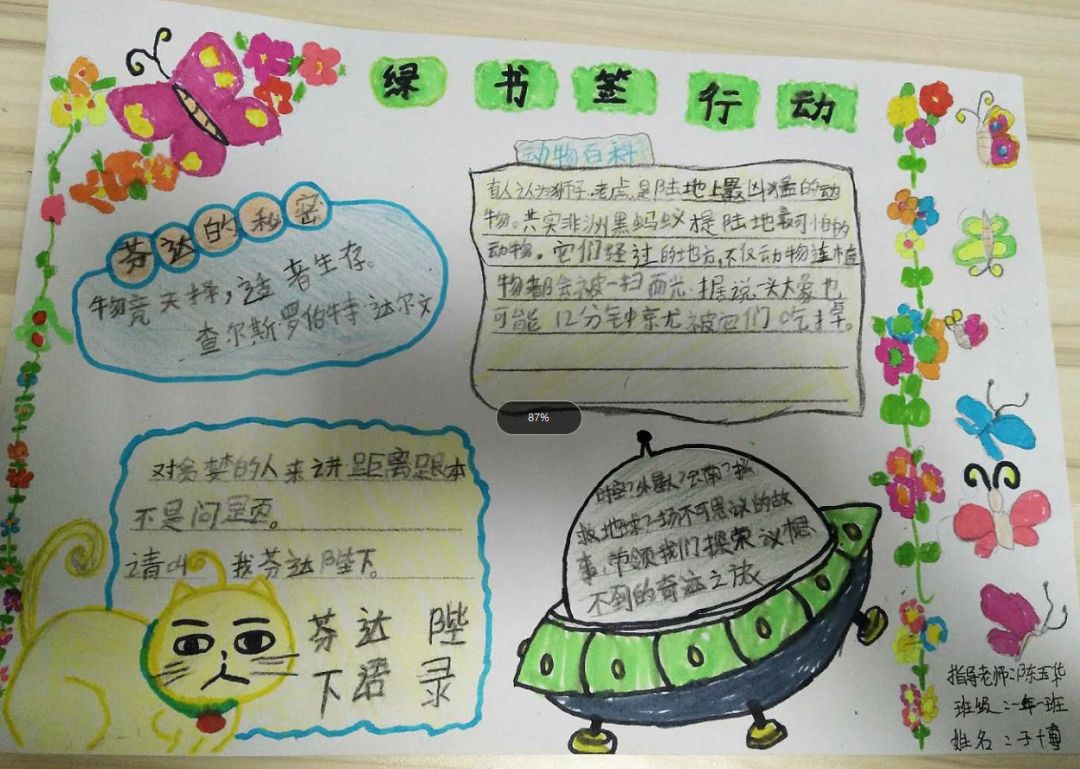 绿书签行动
动物百科
有人认为狮子.老虎.是陆地上最凶猛的动
物。其实非洲黑蚂蚁才是陆地最可怕的
动物。它们经过的地方,不仅动物连植
物都会被一扫而光.据说一头大象也
可能12分钟就被它们吃掉。
芬达的秘密
物竞天择,适者生存。
查尔斯罗伯特达尔文
87%
对贪梦的人来讲距离跟本
不是问题。
请叫我芬达陛下。
芬达陛
下语录
时空?外星人?云南?拯
救地球?一场不可思议的故
事,带领我们探索议想
不到的奇迹之旅
指导老师:陈玉华
班级:一年一班
姓名:子博